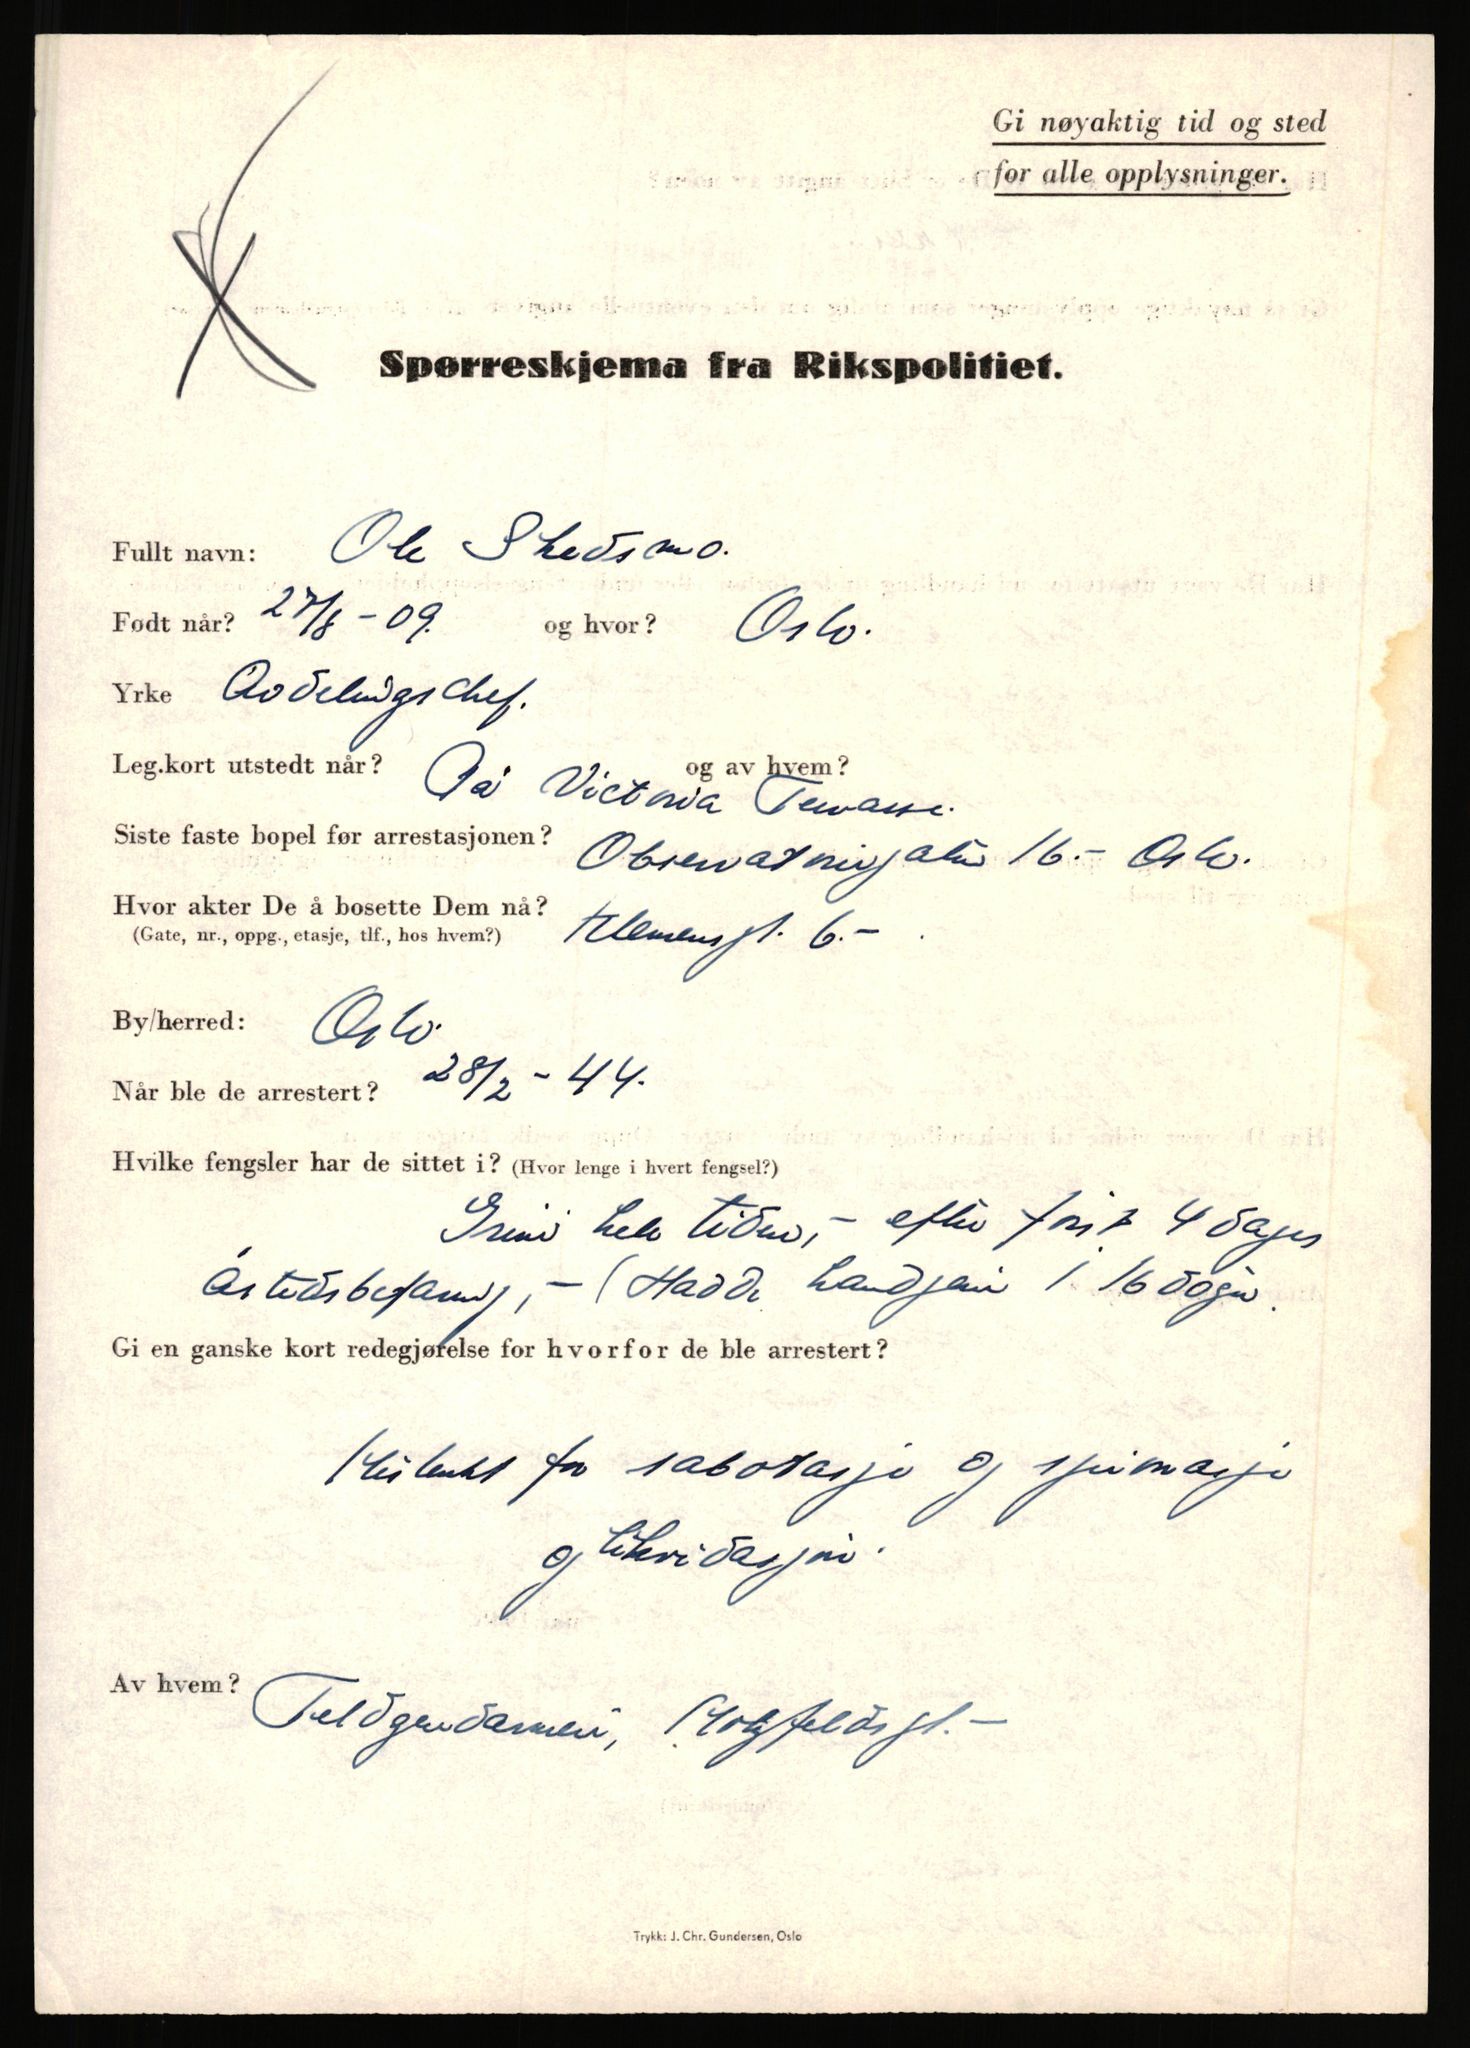 Gi nøyaktig tid og sted
for alle opplysninger.
Spørreskjema fra Rikspolitiet.
Fullt navn: Ole Skedsmo.
Født når? 27/8 - 09. og hvor? Oslo.
Yrke Avdelingschef.
Leg.kort utstedt når? og av hvem?
På Victoria Terrasse.
Siste faste bopel før arrestasjonen? Observatoriegaten 16.- Oslo.
Hvor akter De å bosette Dem nå? Klemensgt. 6.-
(Gate, nr., oppg., etasje, tlf., hos hvem?)
By/herred: Oslo.
Når ble de arrestert? 28/2 - 44.
Hvilke fengsler har de sittet i? (Hvor lenge i hvert fengsel?)
Grini hele tiden, - efter først 4 dages
åstedsbefaring, - (Hadde handjern i 16 døgn.
Gi en ganske kort redegjørelse for hvorfor de ble arrestert?
Mistenkt for sabotasje og spionasje
og likvidasjon.
Av hvem? Feldgendarmeri, Kronprinsensgt.-
Trykk: J. Chr. Gundersen, Oslo